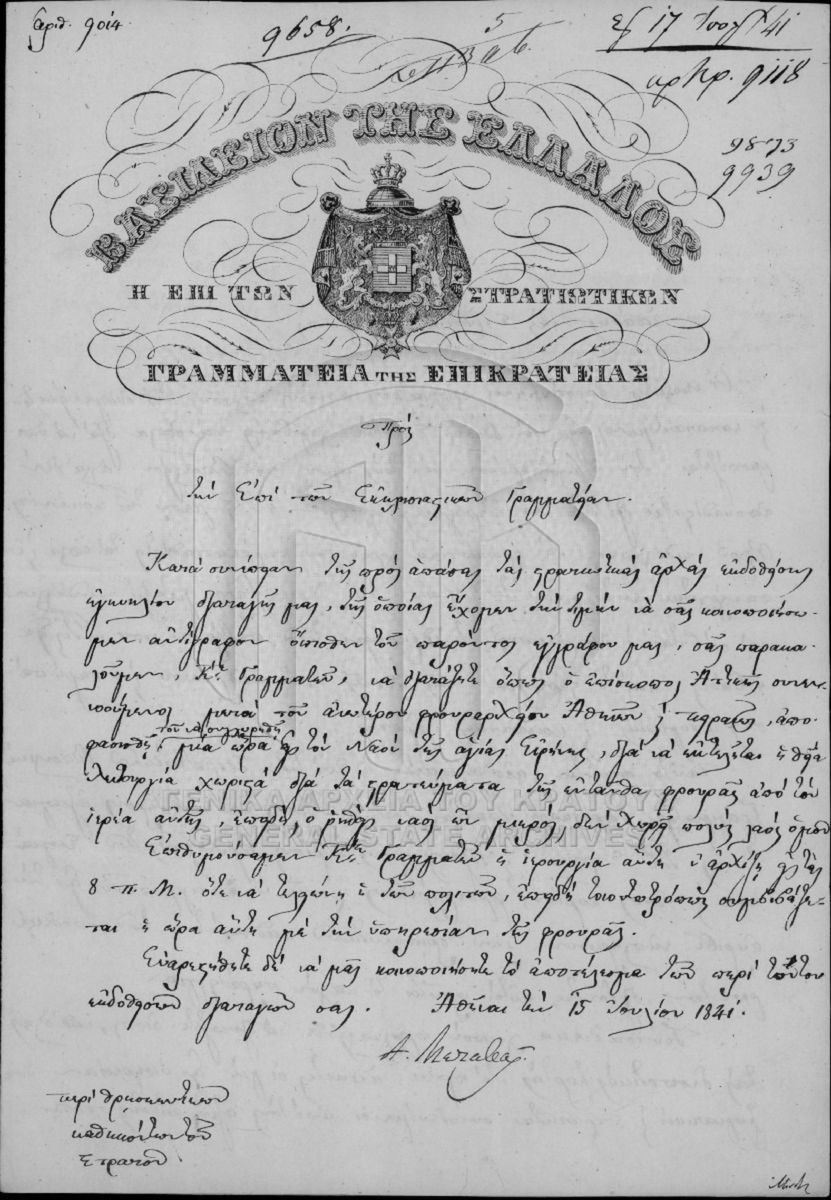 Αριθ. 9014
9658.
5
Εξ 17 Ιουλ 41
αρ πρ. 9118
9873
9939
ΒΑΣΙΛΕΙΟΝ ΤΗΣ ΕΛΛΑΔΟΣ
Η ΕΠΙ ΤΩΝ ΣΤΡΑΤΙΩΤΙΚΩΝ
ΓΡΑΜΜΑΤΕΙΑ ΤΗΣ ΕΠΙΚΡΑΤΕΙΑΣ
Πρὸς
τὴν Ἐπὶ τῶν Ἐκκλησιαστικῶν Γραμματείαν.
Κατὰ συνέπειαν τῆς πρὸς ἁπάσας τὰς στρατιωτικὰς ἀρχὰς ἐκδοθείσης
ἐγκυκλίου διαταγῆς μας, τῆς ὁποίας ἔχομεν τὴν τιμὴν νὰ σᾶς κοινοποιήσω-
μεν ἀντίγραφον ὄπισθεν τοῦ παρόντος ἐγγράφου μας, σᾶς παρακα-
λοῦμεν, Κε Γραμματεῦ, νὰ διατάξετε ὅπως ὁ ἐπίσκοπος Ἀττικῆς συνεν-
νοούμενος μετὰ τοῦ ἀνωτέρου φρουραρχείου Ἀθηνῶν καὶ Πειραιῶς, ἀπο-
φασισθῇ μία ὥρα εἰς τὸν Ναὸν τῆς ἁγίας Εἰρήνης, διὰ νὰ ἐκτελῆται ἡ θεία
λειτουργία χωριστὰ διὰ τὰ στρατεύματα τῆς ἐνταῦθα φρουρᾶς ἀπὸ τὸν
ἱερέα αὐτῆς, ἐπειδὴ, ὁ ῥηθεὶς ναὸς ὢν μικρὸς, δὲν χωρεῖ πολὺς λαὸς ὁμοῦ
Ἐπεθυμούσαμεν Κε Γραμματεῦ ἡ ἱερουργία αὕτη ν' ἀρχίζῃ εἰς τὰς
8 π. Μ. ὅτε νὰ τελειώνῃ ἡ τῶν πολιτῶν, ἐπειδὴ τοιουτοτρόπως συμβιβάζε-
ται ἡ ὥρα αὕτη μὲ τὴν ὑπηρεσίαν τῆς φρουρᾶς.
Εὐαρεστηθῆτε δὲ νὰ μᾶς κοινοποιήσητε τὸ ἀποτέλεσμα τῶν περὶ τούτου
ἐκδοθεισῶν διαταγῶν σας. Ἀθῆναι τὴν 15 Ἰουλίου 1841.
Α. Μεταξᾶς
περὶ θρησκευτικῶν
καθηκόντων τοῦ
Στρατοῦ.
ΓΕΝΙΚΑ ΑΡΧΕΙΑ ΤΟΥ ΚΡΑΤΟΥΣ
GENERAL STATE ARCHIVES